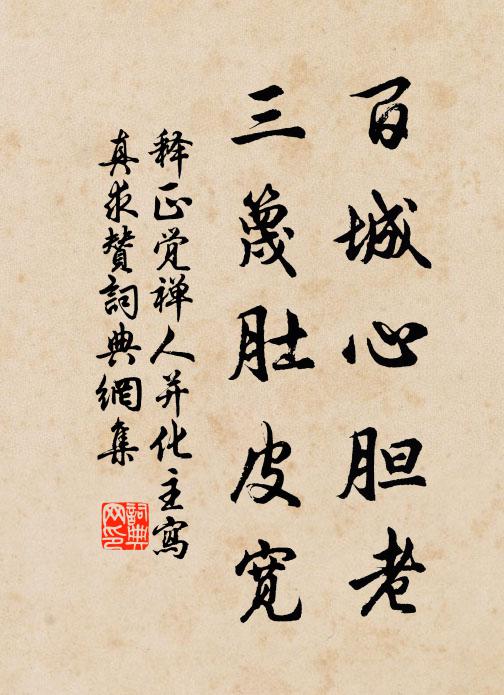 百城心胆老
三篾肚皮宽
释正觉禅人并化主寫
真求赞詞典網集
詞典
网印